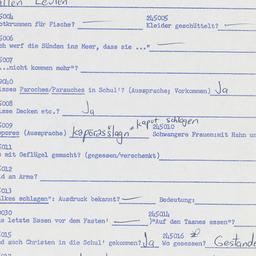 allen Leuten
5004 245005
otkrummen für Fische? Kleider geschüttelt?
5006
ch werf die Sünden ins Meer, dass sie ..."
5007
...nicht kommen mehr"?
9040
isses Paroches/Parauches in Schul'? (Aussprache; Vorkommen) Ja
5008
isse Decken etc.? Ja
5009 kaput schlagen
ppores (Aussprache) kapórasslagn 245010 Schwangere Frauen:mit Hahn un
5011
s mit Geflügel gemacht? (gegessen/verschenkt)
5012
d an Arme?
5013
lkes schlagen": Ausdruck bekannt? Bedeutung:
9030 245014
as letzte Essen vor dem Fasten' )"Auf den Taanes essen"?
5015 245016
nd auch Christen in die Schul' gekommen? Ja Wo gesessen? Gestande